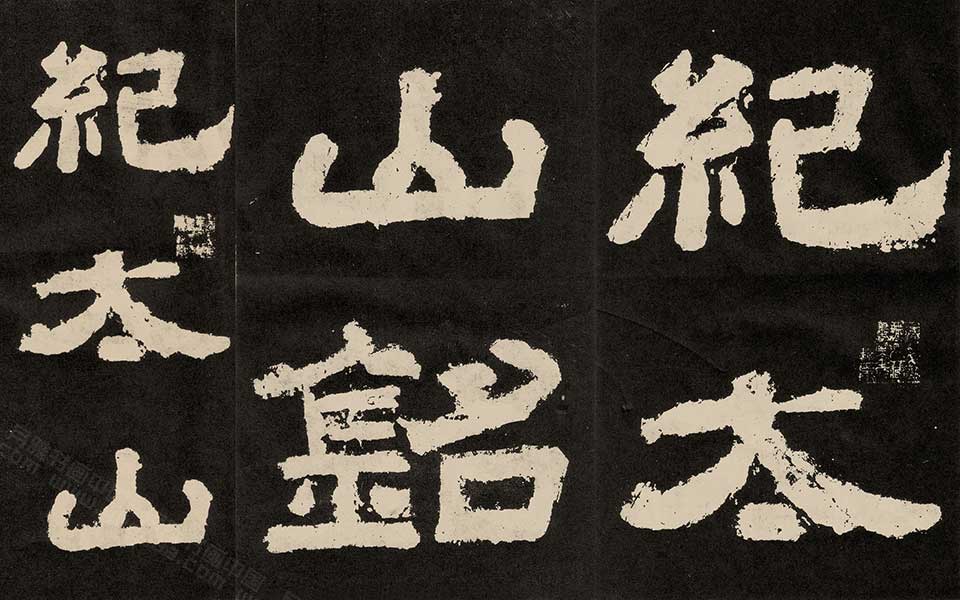 紀太
山銘
紀太山